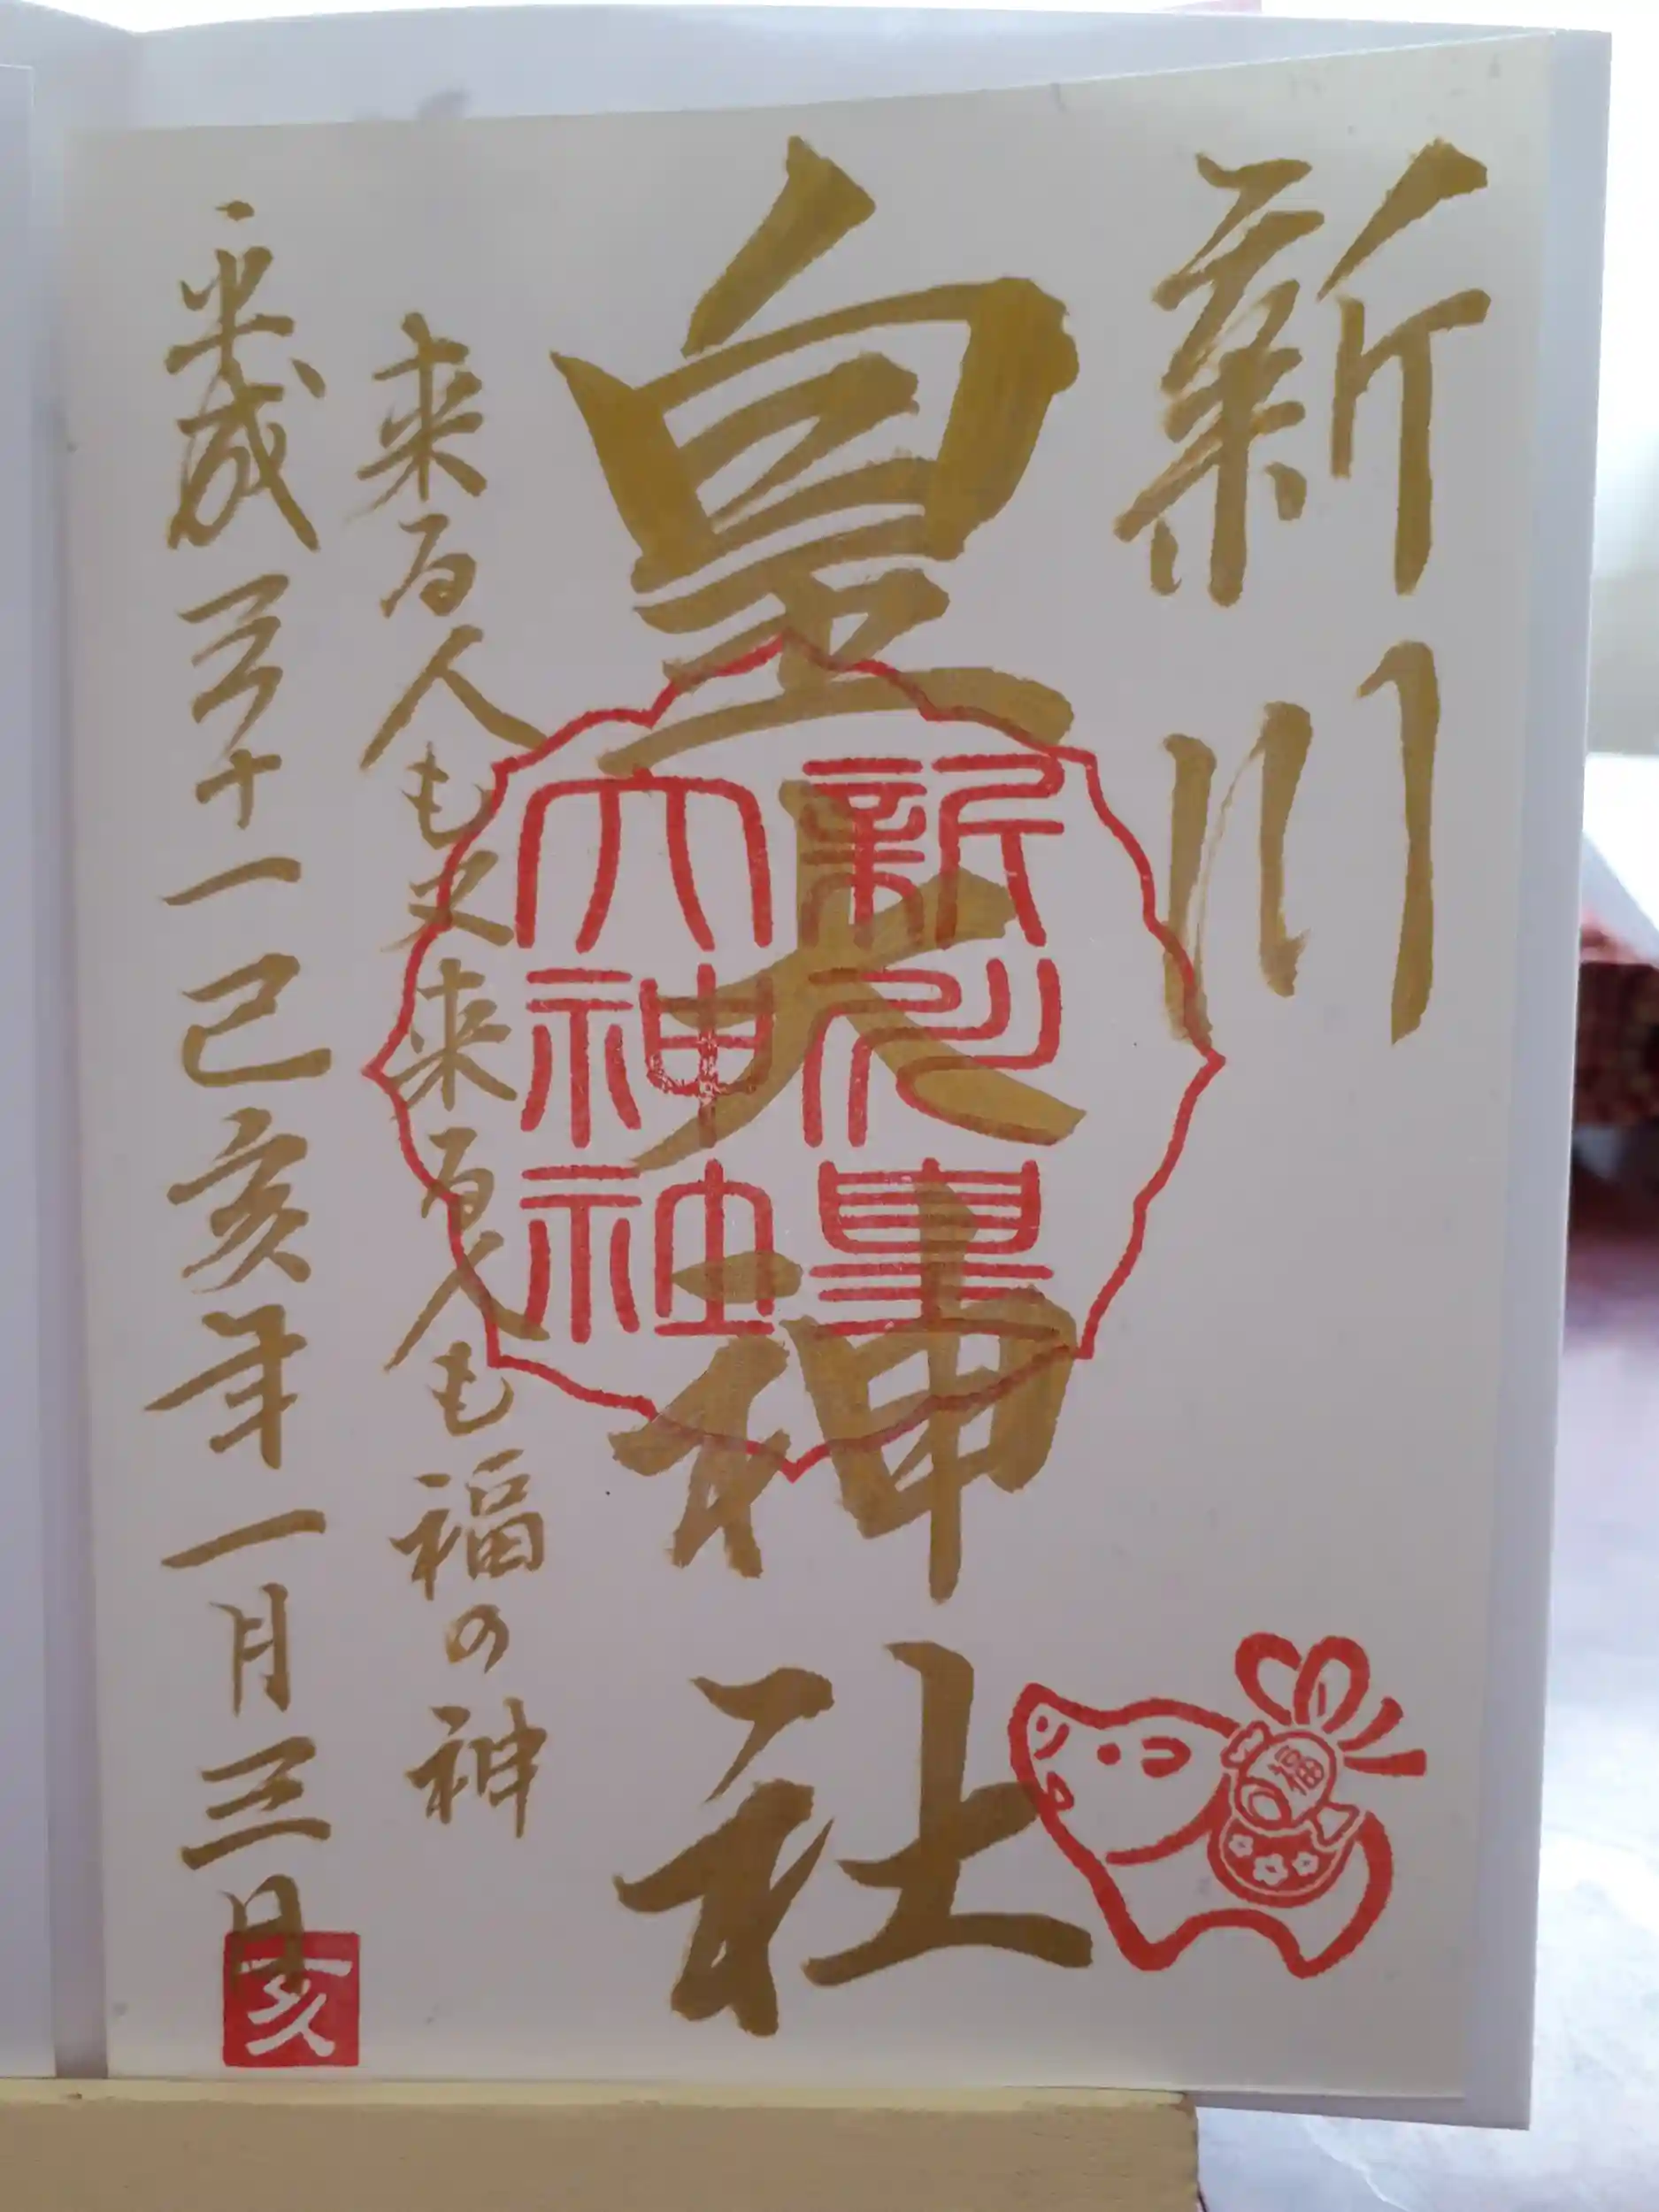 新川
皇大神社
来る人も又来る人も福の神
平成三十一己亥年一月三日
新川皇
大神社
福
亥